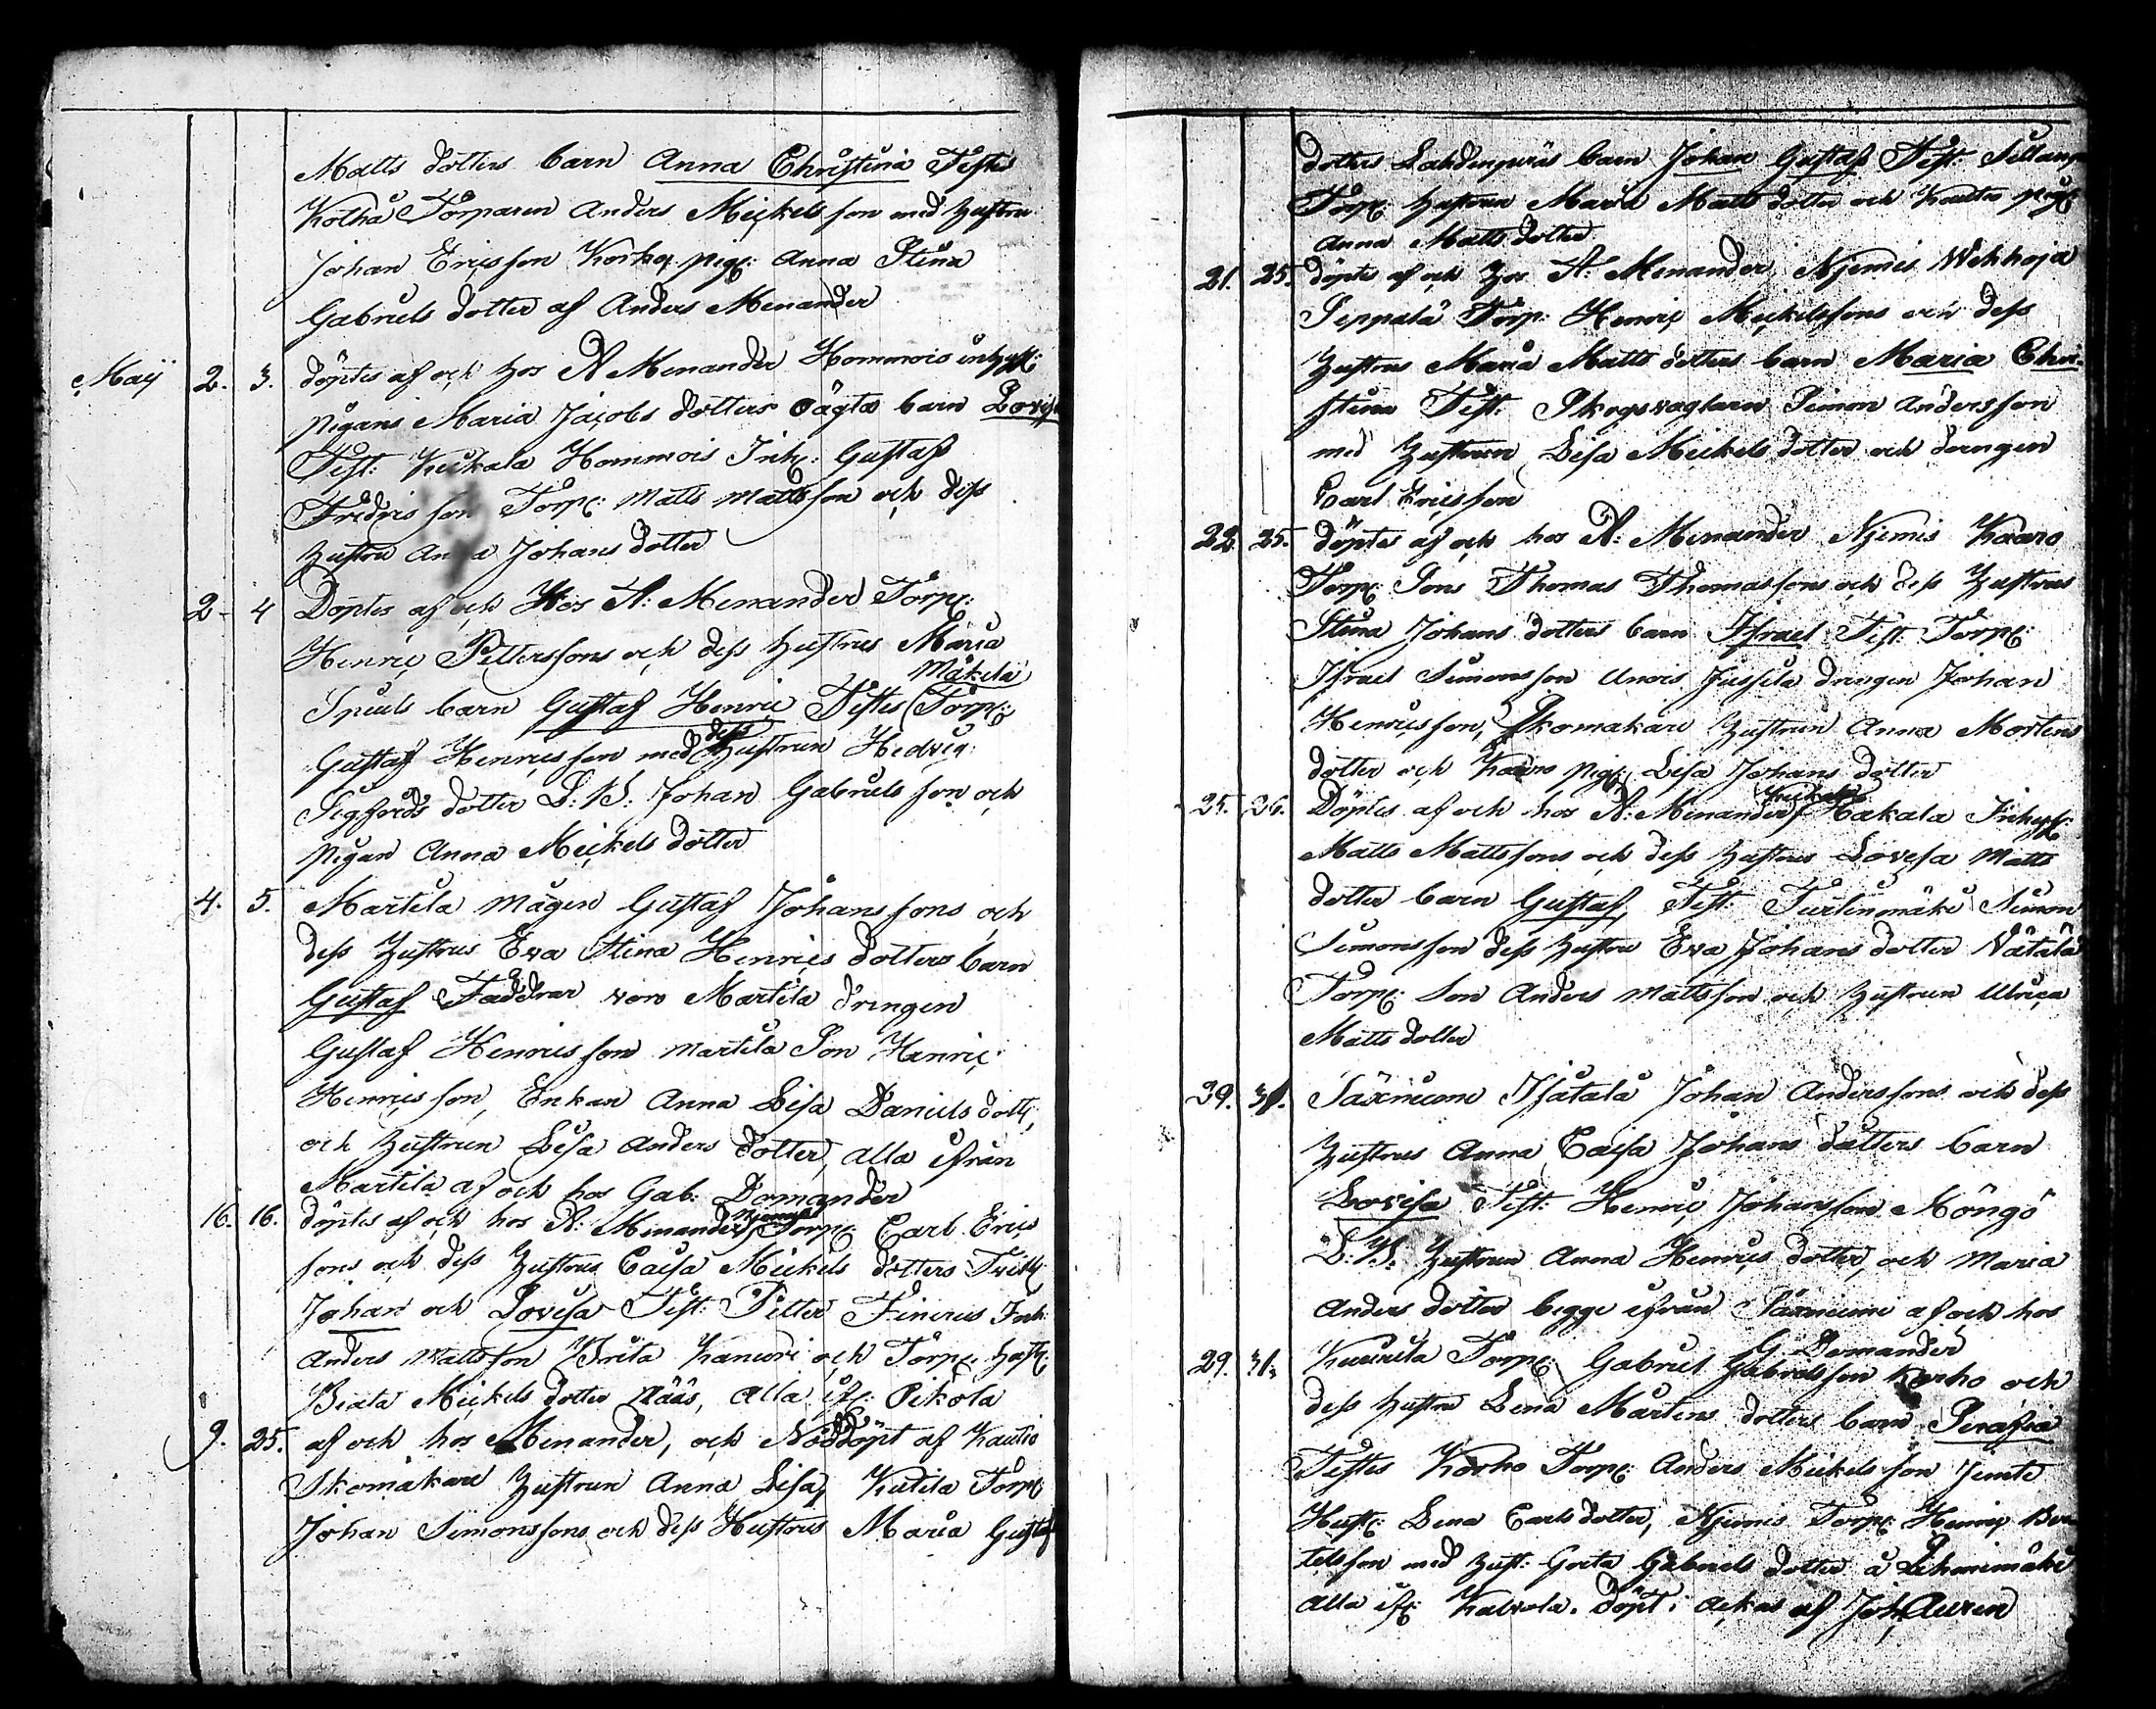 Matts dotters barn Anna Christina Testes
Kolha Torparen Anders Mickels son med hustru
Johan Ericsson Korho pig: Anna Stina
Gabriels dotter af Anders Menander
Maij 2. 3. döptes af och hos A Menander Hommois inhys:
pigans Maria Jacobs dotters oägta barn Lovisa
Test: Hommois Inh: Gustaf
Fredrics son Torp: Matts Mattsson och dess
hustru Anna Johans dotter
2 - 4 Döptes af och Hos A: Menander Torp:
Henric Pettersons och dess hustrus Maria
Mäkelä
barn Gustaf Henric Testes Torp:
dess
Gustaf Henricsson med hustrun Hedvig
Sigfreds dotter D: B: Johan Gabriels son och
pigan Anna Mickels dotter
4. 5. Martila mågen Gustaf Johanssons och
dess hustrus Eva Stina Henrics dotters barn
Gustaf Faddrar voro Martila drengen
Gustaf Henricsson Martila Son Henric
Henricsson, Enkan Anna Lisa Daniels dott:
och hustrun Lisa Anders dotter, alla ifrån
Martila af och hos Gab: Domander
16. 16. döptes af och hos A: Menander Torp: Carl Erics
sons och dess hustrus Caisa Mickels dotters Tvill:
Johan och Lovisa Test: Petter Inh:
Anders Mattsson Brita och Torp: hust:
Beata Mickels dotter Ääs, alla ifr: Oikola
9. 25. af och hos Menander, och Nöddöpt af Kautio
Skomakare hustrun Anna Lisa, Kutila Torp:
Johan Simonssons och dess Hustrus Maria Gustaf
dotters barn Johan Gustaf Test:
Torp: hustrun Maria Matts dotter och pig:
Anna Matts dotter
21. 25. döptes af och hos A: Menander Njemis Wehkoja
Seppälä Torp: Henric Mickelssons och dess
hustrus Maria Matts dotters barn Maria Chri-
stina Test: Skogsvagtaren Simon Andersson
med hustrun Lisa Mickels dotter och drengen
Carl Ericsson
22. 25. döptes af och hos A: Menander Njemis Kaaro
Torp: Sons Thomas Thomassons och dess hustrus
Stina Johans dotters barn Israel Test: Torp:
Israel Simonsson Unois Jussila drengen Johan
Henricsson, Skomakare hustrun Anna Mortens
dotter och Kaaro pig: Lisa Johans dotter
25. 26. Döptes af och hos A: Menander Hakala Inhys:
Matts Mattssons och dess hustrus Lovisa Matts
dotter barn Gustaf, Test: Simon
Simonsson dess hustru Eva Johans dotter Nätälä
Torp: Son Anders Mattsson och hustrun Ulrica
Matts dotter
29. 31. Säxniemi Isätalå Johan Anderssons och dess
hustrus Anna Caisa Johans dotters barn
Lovisa Test: Henric Johansson Möngö
D: B: hustrun Anna Henrics dotter, och Maria
Anders dotter begge ifrån Säxniemi af och hos
G. Domander
29. 31. Torp: Gabriel Gabrielsson Korho och
dess hustru Lena Mårtens dotters barn Serafia
Testes Korho Torp: Anders Mickels son jemte
Hust: Lena Carls dotter, Njemis Torp: Henric Ber-
telsson med hust: Greta Gabriels dotter å
alla ifr: Kalvola. Döpt i Ackas af Joh: Auren